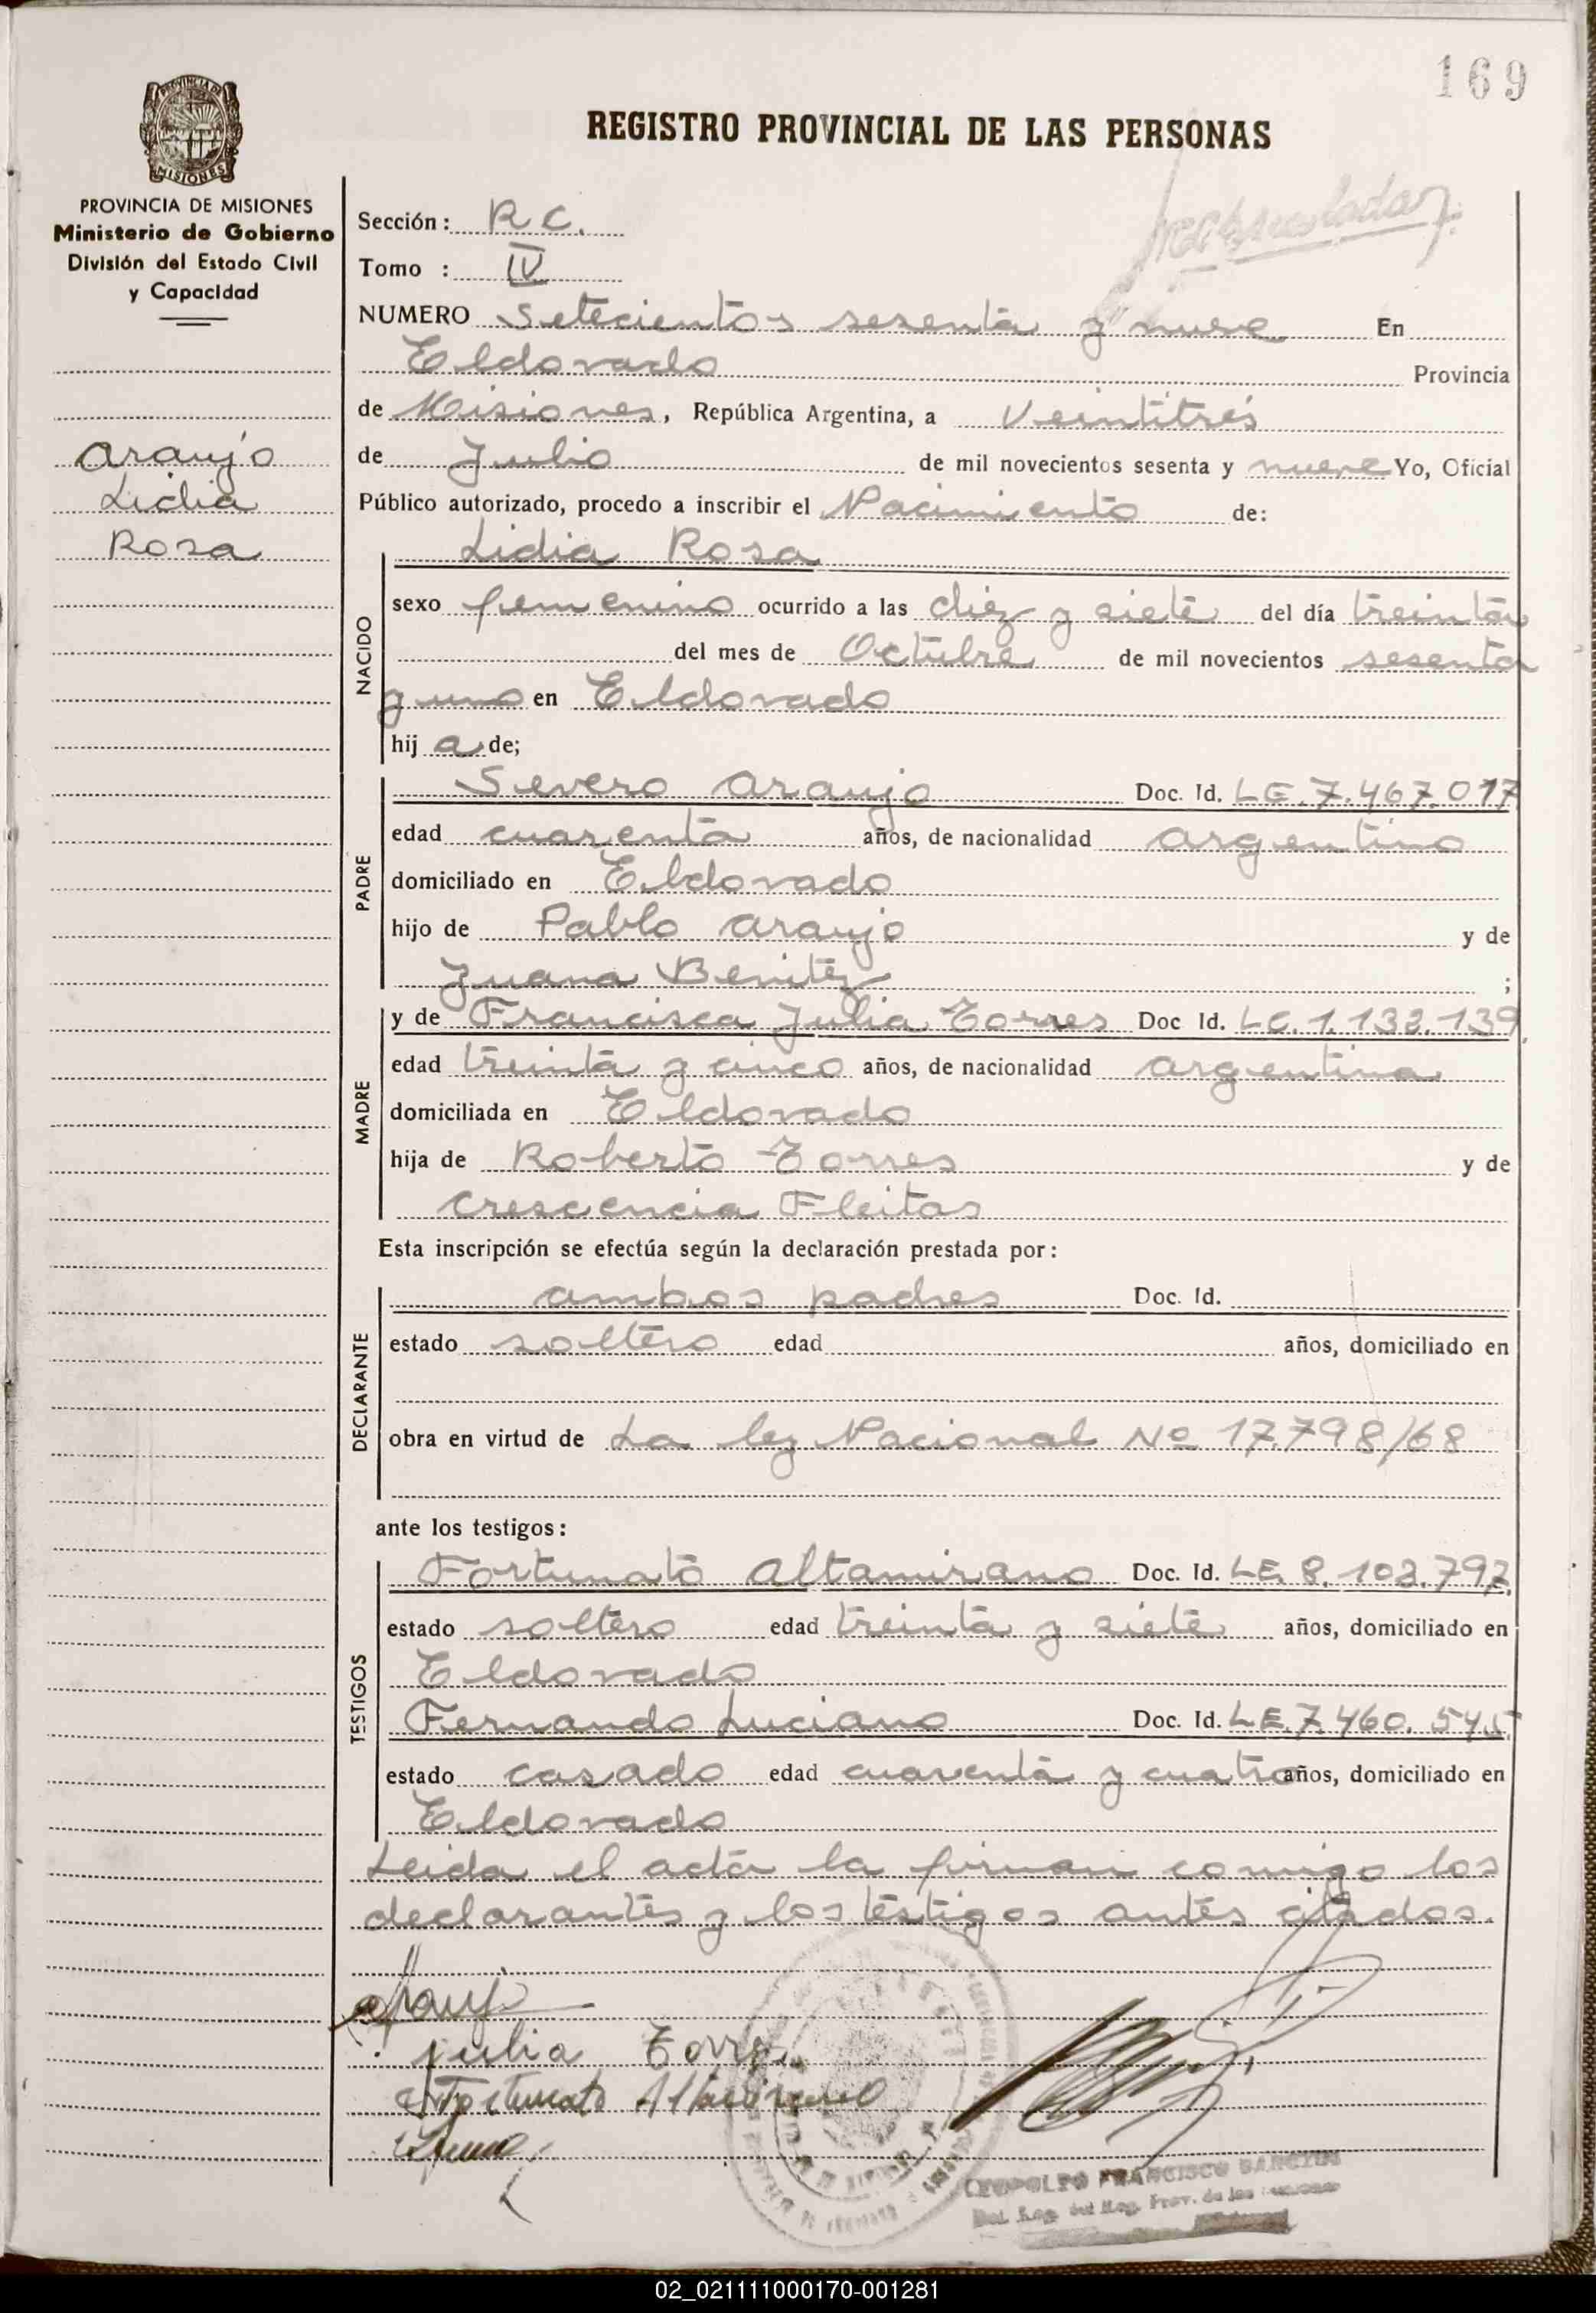 169
REGISTRO PROVINCIAL DE LAS PERSONAS
PROVINCIA DE MISIONES
MISIONES
PROVINCIA DE MISIONES
Ministerio de Gobierno
División del Estado Civil
y Capacidad
Araujo
Lidia
Rosa
Sección: R C.
Tomo : IV
NUMERO Setecientos sesenta y nueve En
Eldorado Provincia
de Misiones, República Argentina, a Veintitrés
de Julio de mil novecientos sesenta y nueve Yo, Oficial
Público autorizado, procedo a inscribir el Nacimiento de:
Lidia Rosa
NACIDO
sexo femenino ocurrido a las diez y siete del día treinta
del mes de Octubre de mil novecientos sesenta
y uno en Eldorado
hij a de;
PADRE
Severo Araujo Doc. Id. LE.7.467.017
edad cuarenta años, de nacionalidad argentino
domiciliado en Eldorado
hijo de Pablo Araujo y de
Juana Benitez ;
MADRE
y de Francisca Julia Torres Doc Id. LC.1.132.139
edad treinta y cinco años, de nacionalidad argentina
domiciliada en Eldorado
hija de Roberto Torres y de
Crescencia Fleitas
Esta inscripción se efectúa según la declaración prestada por:
DECLARANTE
ambos padres Doc. Id.
estado soltero edad años, domiciliado en
obra en virtud de La ley Nacional Nº 17.798/68
ante los testigos:
TESTIGOS
Fortunato Altamirano Doc. Id. LE. 8.102.792
estado soltero edad treinta y siete años, domiciliado en
Eldorado
Fernando Luciano Doc. Id. LE.7.460.545
estado casado edad cuarenta y cuatro años, domiciliado en
Eldorado
Leida el acta la firman comigo los
declarantes y los testigos antes citados.
Arauj
julia Torres
Fortunato Altamirano
LEOPOLDO FRANCISCO
Del. Reg. del Reg. Prov. de las
02_021111000170-001281